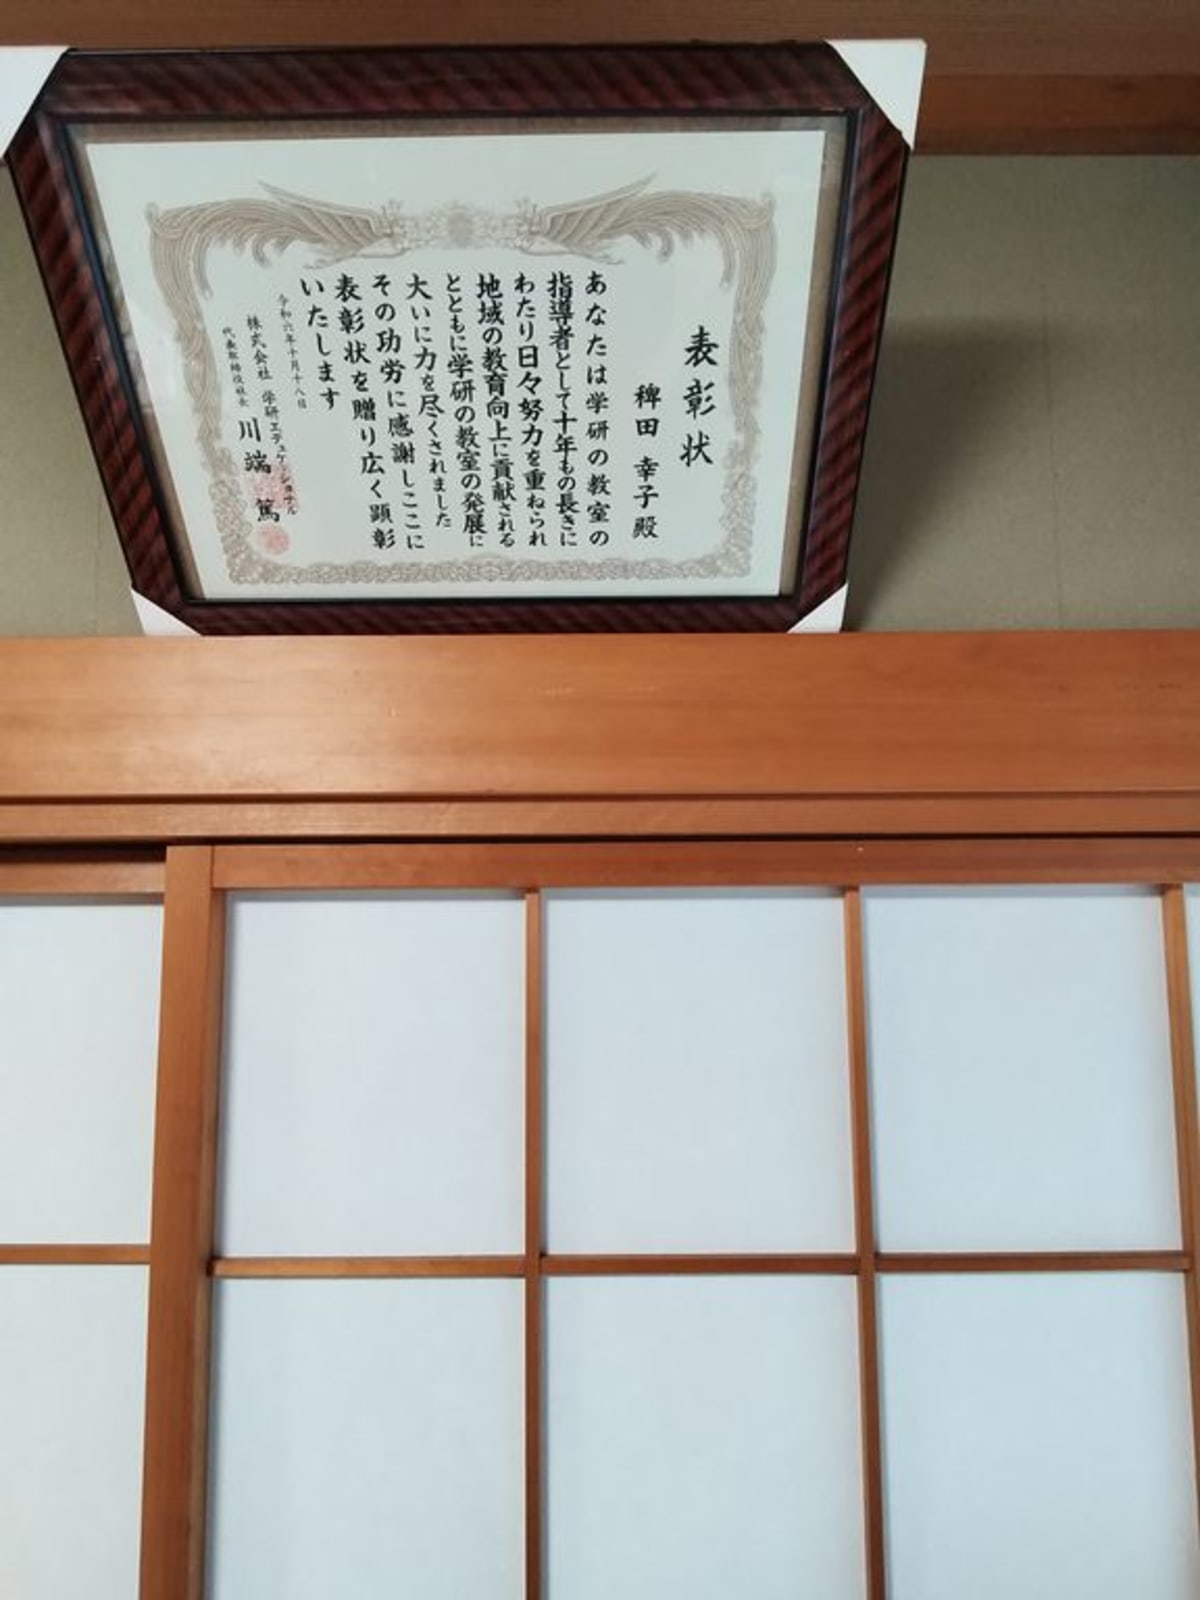 表彰状
稗田 幸子 殿
あなたは学研の教室の
指導者として十年もの長きに
わたり日々努力を重ねられ
地域の教育向上に貢献される
とともに学研の教室の発展に
大いに力を尽くされました
その功労に感謝しここに
表彰状を贈り広く顕彰
いたします
令和六年十月十八日
株式会社 学研エデュケーショナル
代表取締役社長 川端 篤